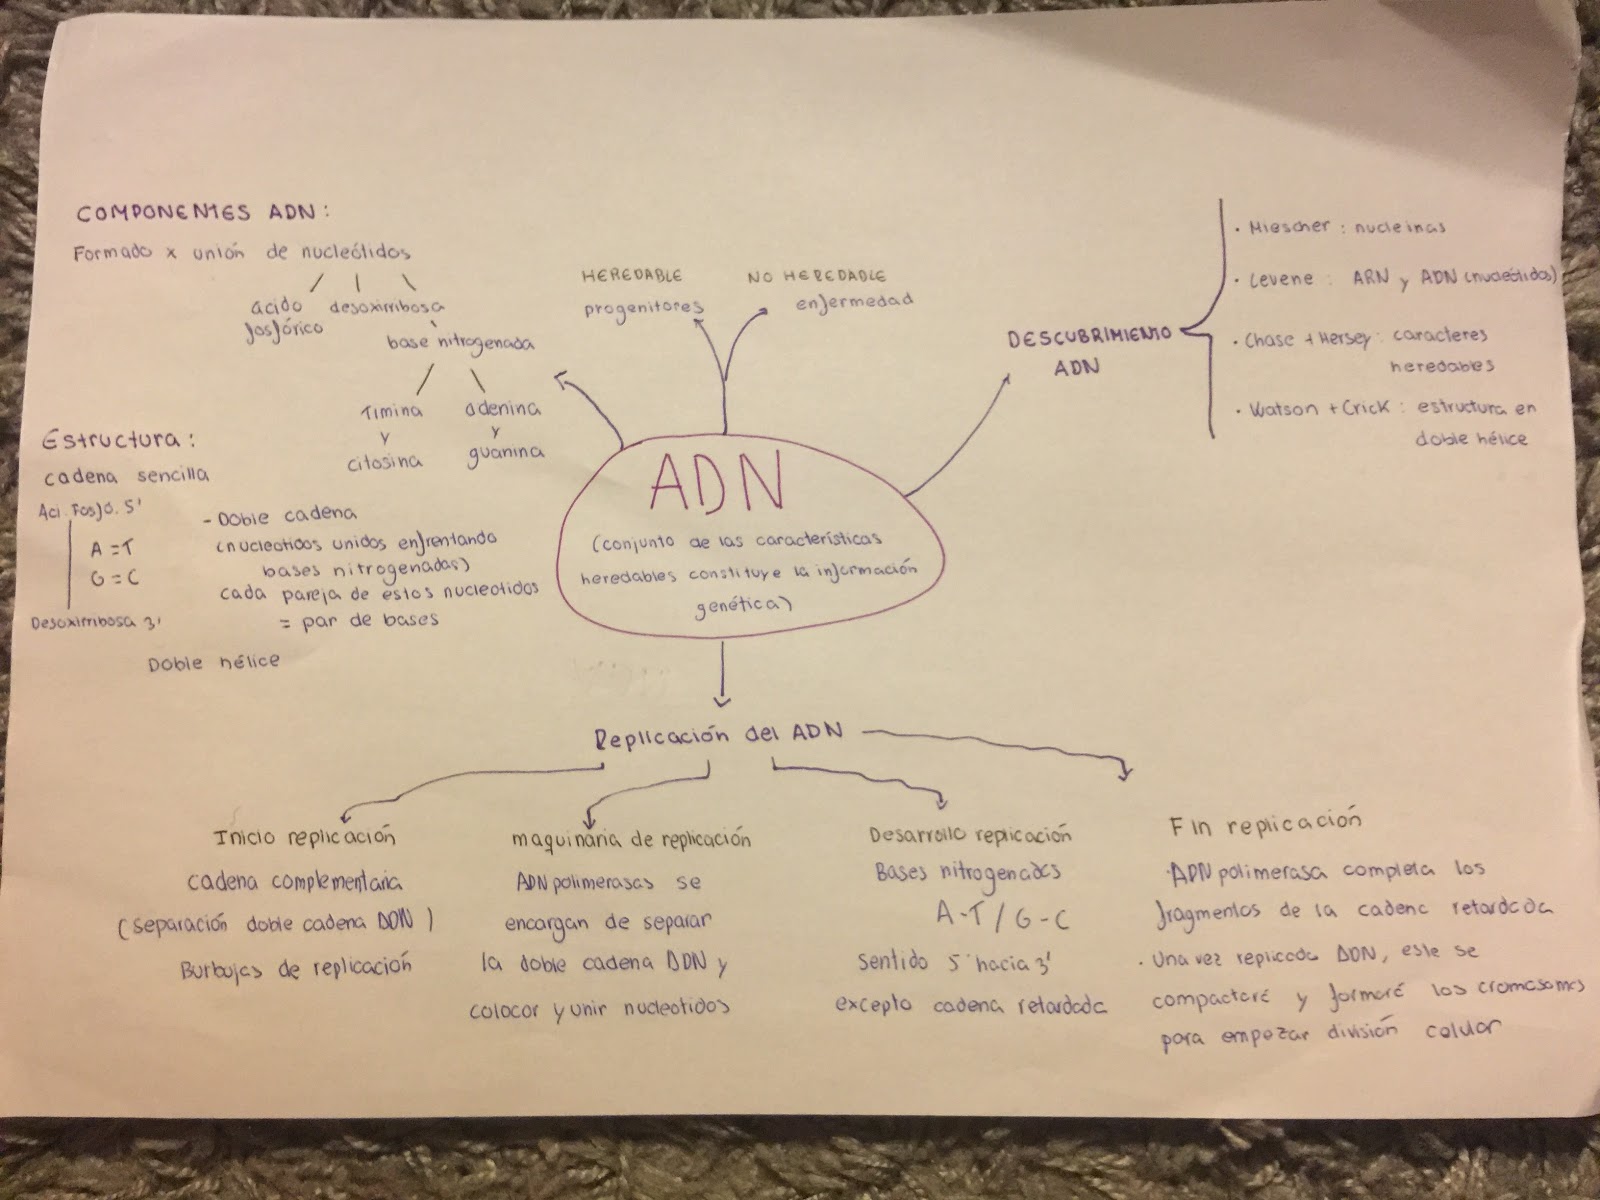 COMPONENTES ADN:
Formado x unión de nucleótidos
ácido
fosfórico
desoxirribosa
base nitrogenada
Timina
y
citosina
adenina
y
guanina
HEREDABLE
progenitores
NO HEREDABLE
enfermedad
DESCUBRIMIENTO
ADN
· Miescher: nucleinas
· Levene: ARN y ADN (nucleótidos)
· Chase + Hersey: caracteres
heredables
· Watson + Crick: estructura en
doble hélice
Estructura:
cadena sencilla
Aci. Fosfo. 5'
A = T
G = C
Desoxirribosa 3'
- Doble cadena
(nucleotidos unidos enfrentando
bases nitrogenadas)
cada pareja de estos nucleotidos
= par de bases
Doble hélice
ADN
(conjunto de las características
heredables constituye la información
genética)
Replicación del ADN
Inicio replicación
cadena complementaria
(separación doble cadena ADN)
Burbujas de replicación
maquinaria de replicación
ADN polimerasas se
encargan de separar
la doble cadena ADN y
colocar y unir nucleotidos
Desarrollo replicación
Bases nitrogenadas
A-T / G-C
sentido 5' hacia 3'
excepto cadena retardada
Fin replicación
· ADN polimerasa completa los
fragmentos de la cadena retardada
· Una vez replicado ADN, este se
compactaré y formaré los cromosomas
para empezar división celular